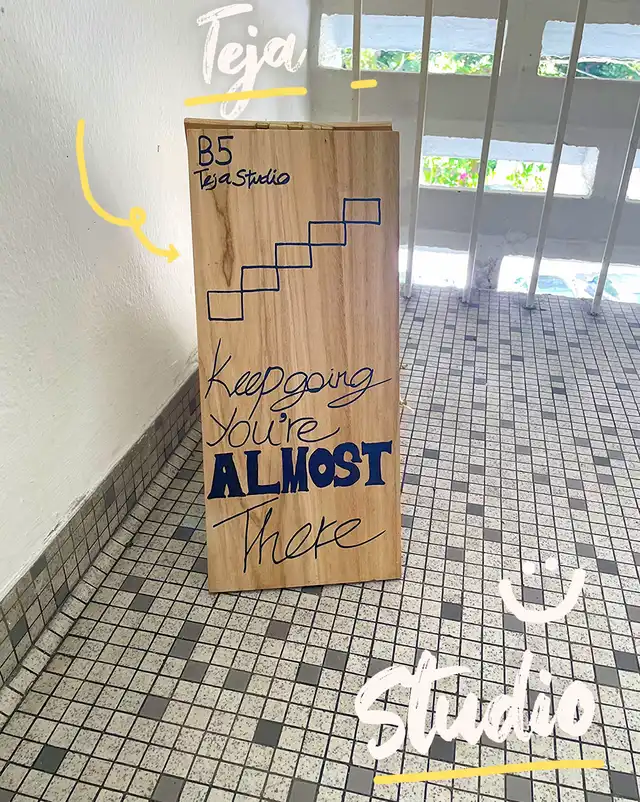 Teja
B5
Teja Studio
Keep going
You're
ALMOST
There
Studio